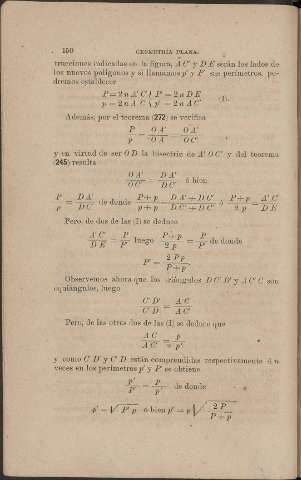 150 GEOMETRÍA PLANA.
trucciones indicadas en la figura, A' C' y D E serán los lados de
los nuevos polígonos y si llamamos p' y P' sus perímetros, po-
dremos establecer
P = 2 n A' C' } P' = 2 n D E
p = 2 n A C } p' = 2 n A C' (1).
Además, por el teorema (272) se verifica
P / p = O A' / O A = O A' / O C'
y en virtud de ser O D la bisectriz de A' O C' y del teorema
(245) resulta
O A' / O C' = D A' / D C' ó bien
P / p = D A' / D C' de donde P + p / p + p = D A' + D C' / D C' + D C' ó P + p / 2 p = A' C' / D E
Pero, de dos de las (1) se deduce
A' C' / D E = P / P' luego P + p / 2 p = P / P' de donde
P' = 2 P p / P + p
Observemos ahora que los triángulos D C' D' y A C' C son
equiángulos, luego
C' D' / C' D = A C / A C'
Pero, de las otras dos de las (1) se deduce que
A C / A C' = p / p'
y como C' D' y C' D están comprendidas respectivamente 4 n
veces en los perímetros p' y P' se obtiene
p' / P' = p / p' de donde
p' = √ P' p ó bien p' = p √ 2 P / P + p